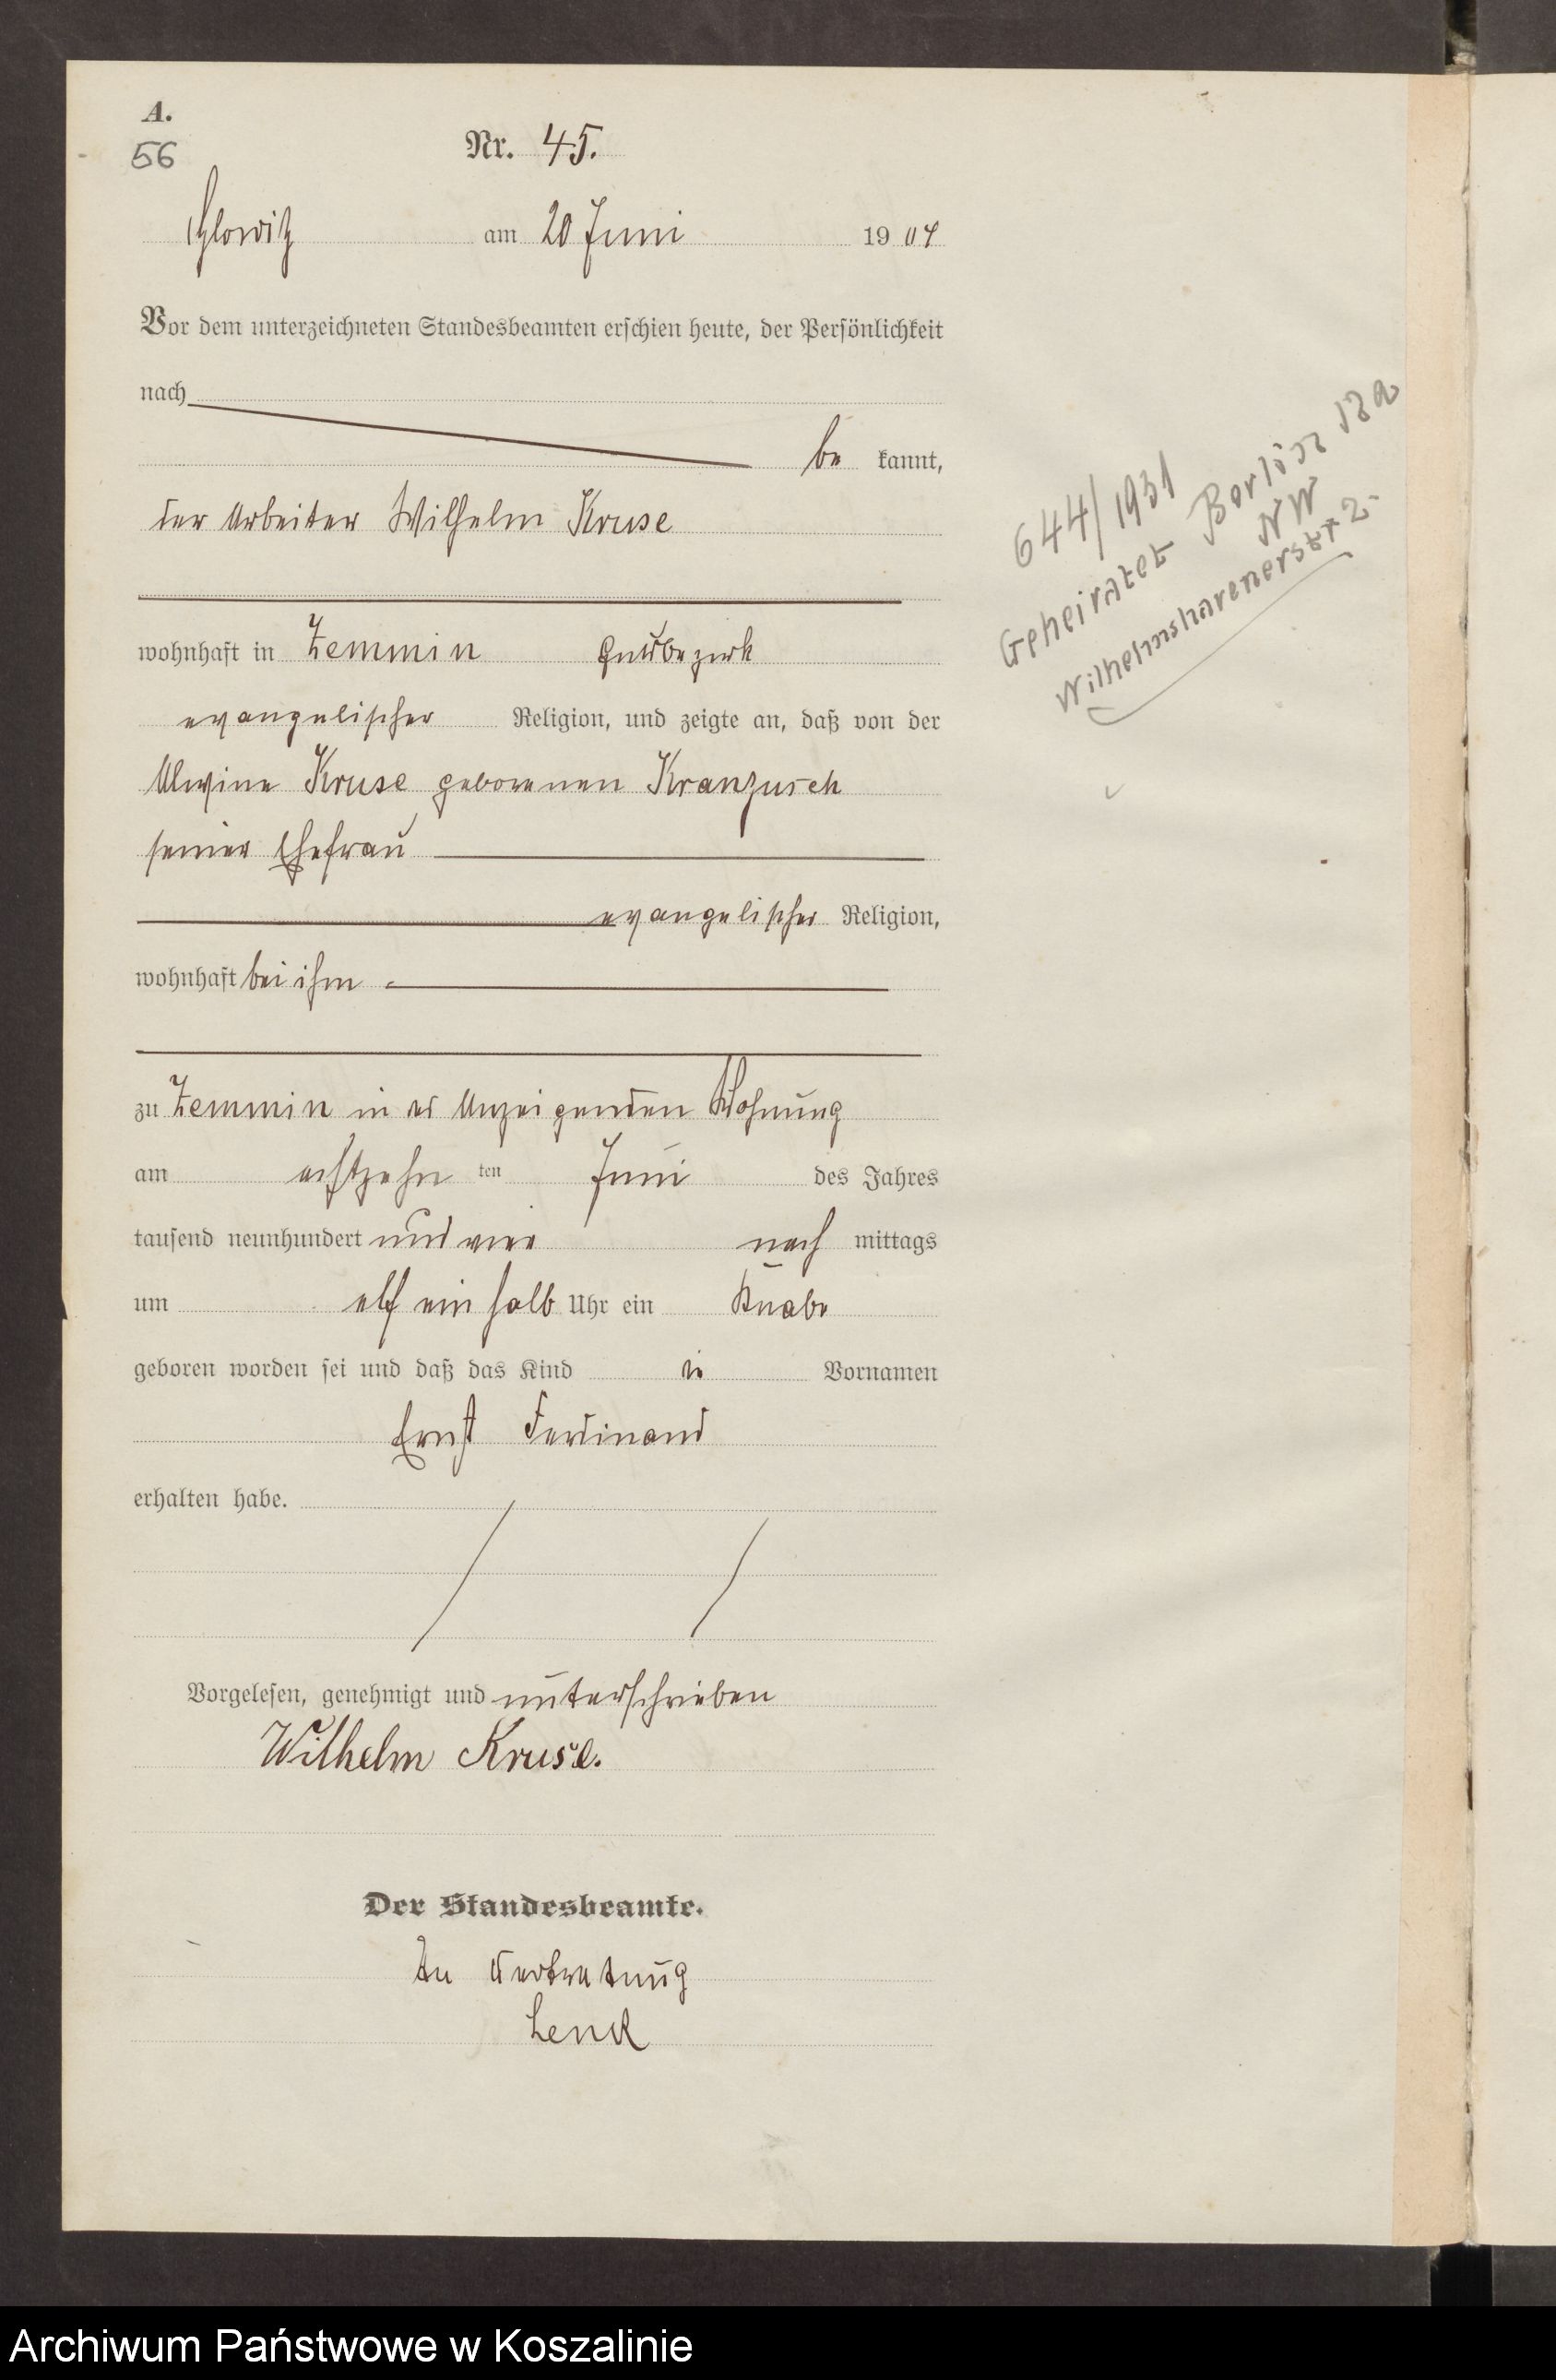 A.
56
Nr. 45.
Glowitz am 20 Juni 1904
Vor dem unterzeichneten Standesbeamten erschien heute, der Persönlichkeit
nach
be kannt,
der Arbeiter Wilhelm Kruse
wohnhaft in Zemmin Gutsbezirk
evangelischer Religion, und zeigte an, daß von der
Alwine Kruse geborenen Kranzusch
seiner Ehefrau
evangelischer Religion,
wohnhaft bei ihm
zu Zemmin in des Anzeigenden Wohnung
am achtzehn ten Juni des Jahres
tausend neunhundert und vier nach mittags
um elf ein halb Uhr ein Knabe
geboren worden sei und daß das Kind die Vornamen
Ernst Ferdinand
erhalten habe.
Vorgelesen, genehmigt und unterschrieben
Wilhelm Kruse.
Der Standesbeamte.
In Vertretung
Lenck
644/1931
Geheiratet Berlin 12a
NW
Wilhelmshavenerstr 2
Archiwum Państwowe w Koszalinie